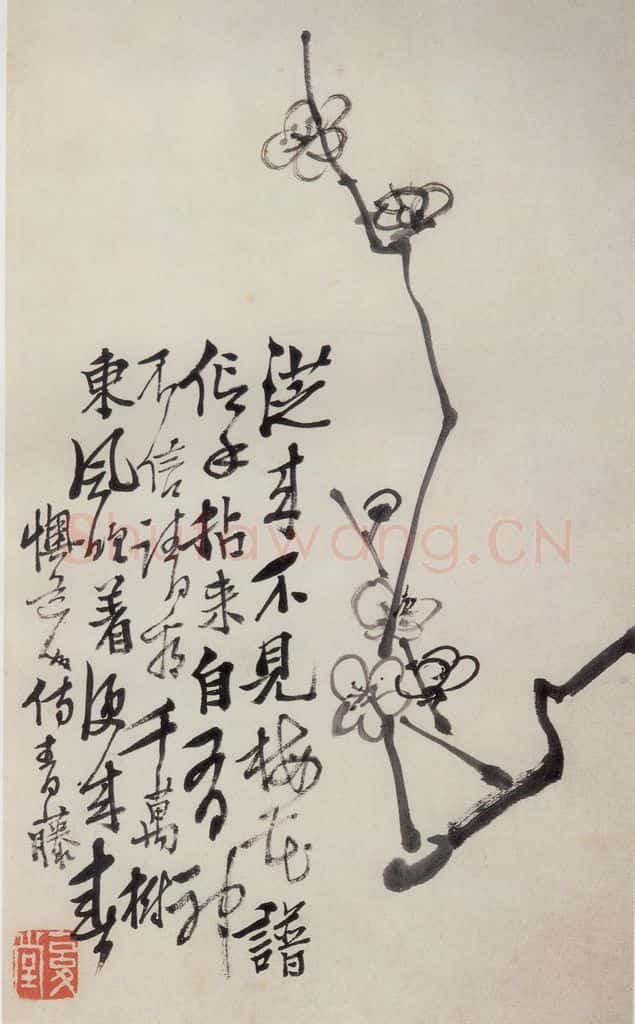 從来不見梅花譜
信手拈来自有神
不信請看千萬樹
東風吹着便成春
青藤
Shufawang.CN